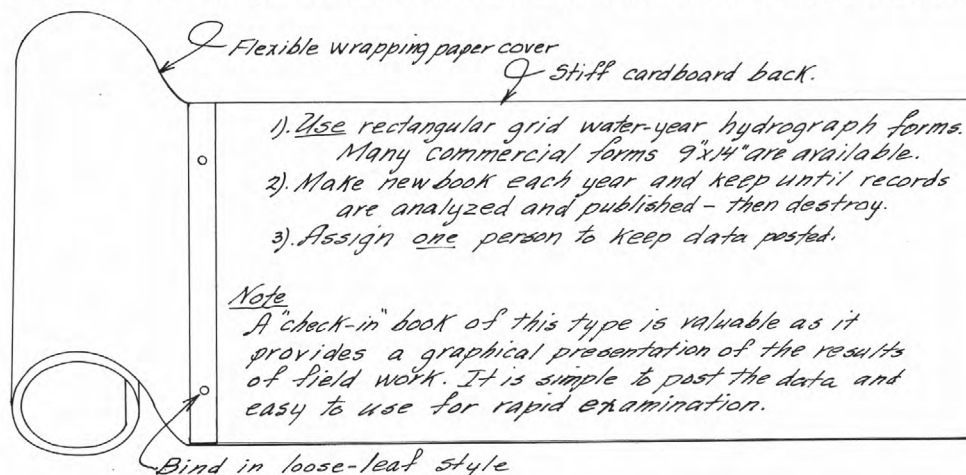 Flexible wrapping paper cover
Stiff cardboard back.
1). Use rectangular grid water-year hydrograph forms.
Many commercial forms 9"x14" are available.
2). Make new book each year and keep until records
are analyzed and published - then destroy.
3). Assign one person to keep data posted.
Note
A "check-in" book of this type is valuable as it
provides a graphical presentation of the results
of field work. It is simple to post the data and
easy to use for rapid examination.
Bind in loose-leaf style